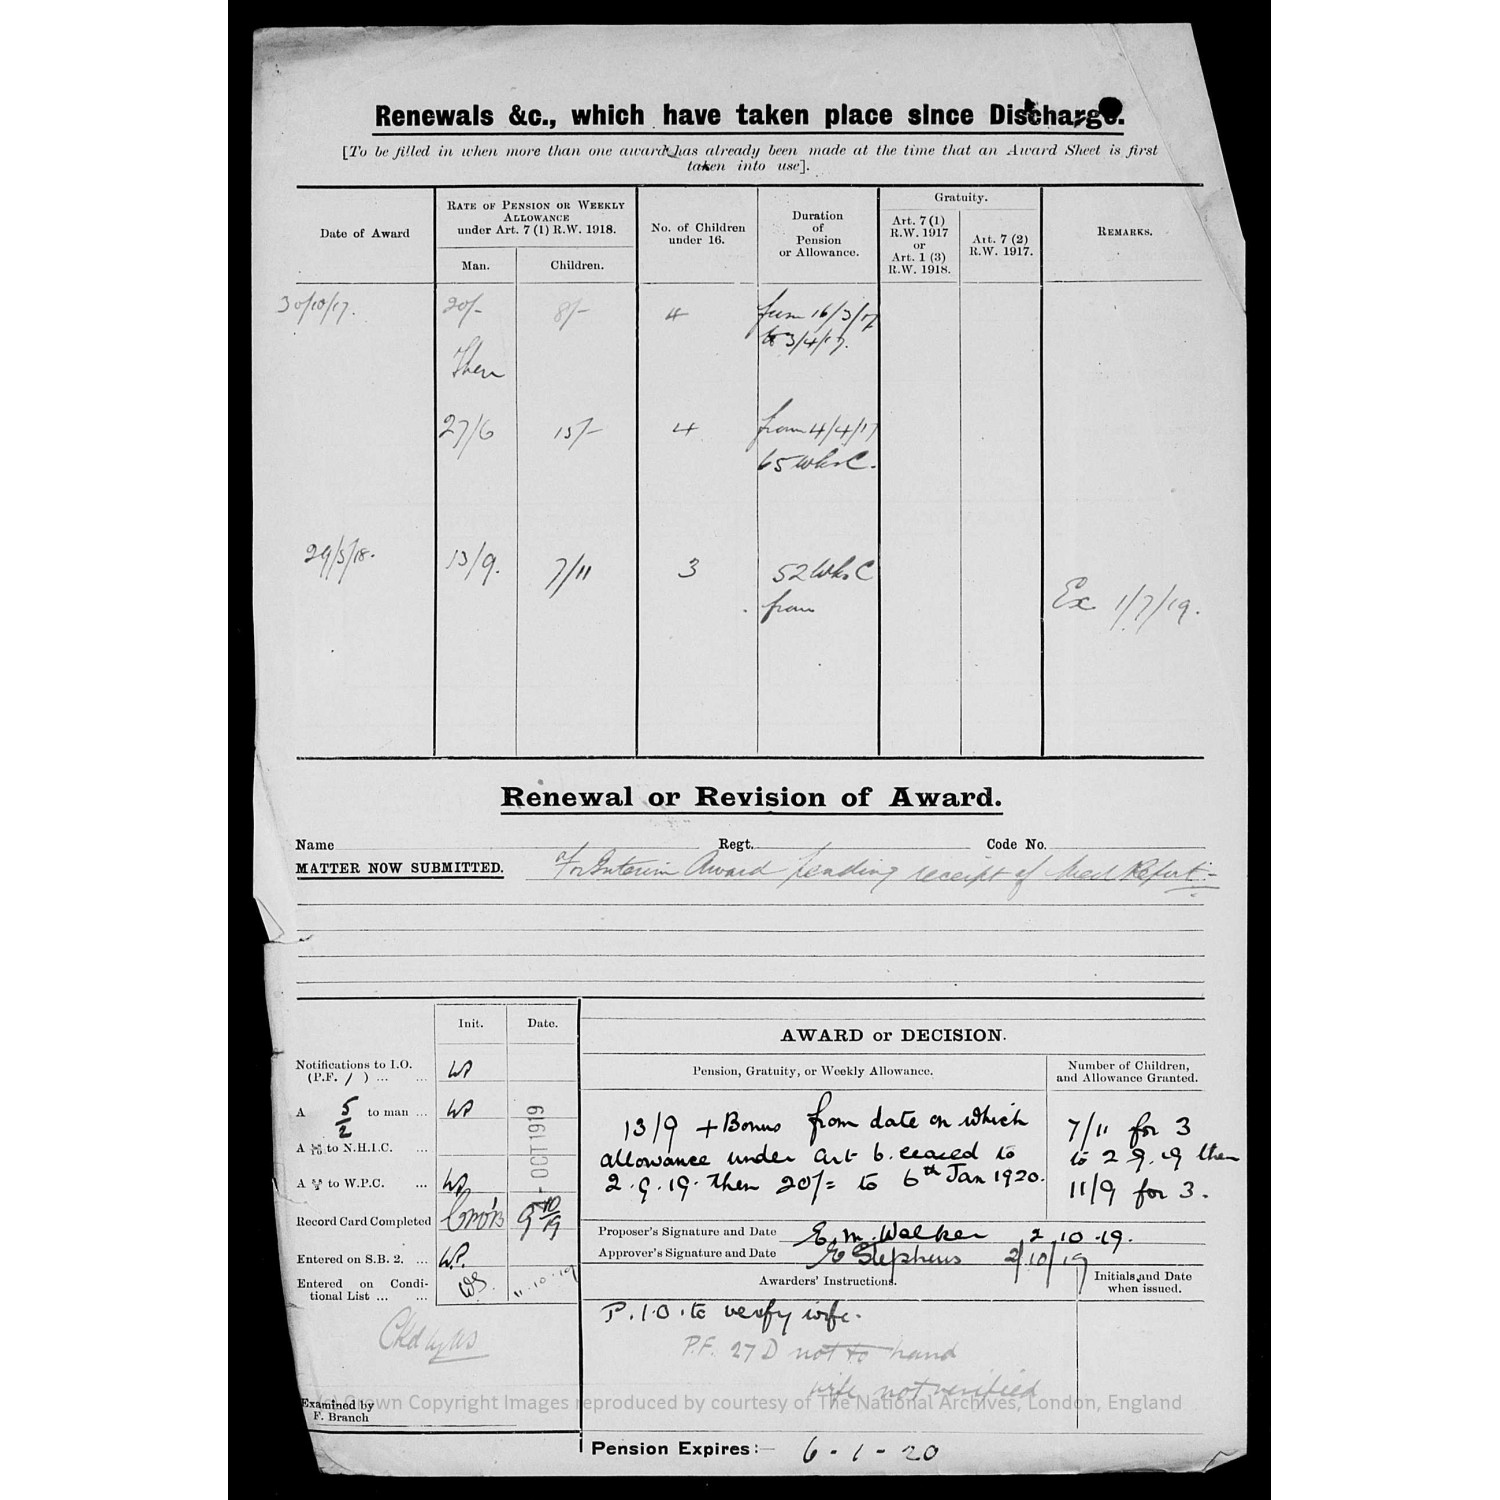 Renewals &c., which have taken place since Discharge.
[To be filled in when more than one award has already been made at the time that an Award Sheet is first
taken into use].
Date of Award
RATE OF PENSION OR WEEKLY
ALLOWANCE
under Art. 7 (1) R.W. 1918.
Man.
Children.
No. of Children
under 16.
Duration
of
Pension
or Allowance.
Gratuity.
Art. 7 (1)
R.W. 1917
or
Art. 1 (3)
R.W. 1918.
Art. 7 (2)
R.W. 1917.
REMARKS.
30/10/17. 20/- 8/- 4 from 16/3/17
to 3/4/17.
Then
27/6 15/- 4 from 4/4/17
65 wks C.
29/5/18. 13/9. 7/11 3 52 Wks C
from
Ex 1/7/19.
Renewal or Revision of Award.
Name Regt. Code No.
MATTER NOW SUBMITTED. For Interim Award pending receipt of Med Report:-
Init. Date.
Notifications to I.O.
(P.F. / ) ... ...
A 5/2 to man ...
A to N.H.I.C. ...
A to W.P.C. ...
OCT 1919
Record Card Completed 9 10/19
Entered on S.B. 2. ... W.P.
Entered on Condi-
tional List ... ... WS. 11.10.19
Examined by
F. Branch
AWARD or DECISION.
Pension, Gratuity, or Weekly Allowance.
Number of Children,
and Allowance Granted.
13/9 + Bonus from date on which
allowance under Art 6. ceased to
2.9.19. then 20/= to 6th Jan 1920.
7/11 for 3
to 2 9.19 then
11/9 for 3.
Proposer's Signature and Date E. M. Walker 2.10.19.
Approver's Signature and Date E Stephens 2/10/19
Awarders' Instructions.
Initials and Date
when issued.
P.I.O. to verify wife.
P.F. 27 D not to hand
wife not verified
(c) Crown Copyright Images reproduced by courtesy of The National Archives, London, England
Pension Expires:— 6-1-20